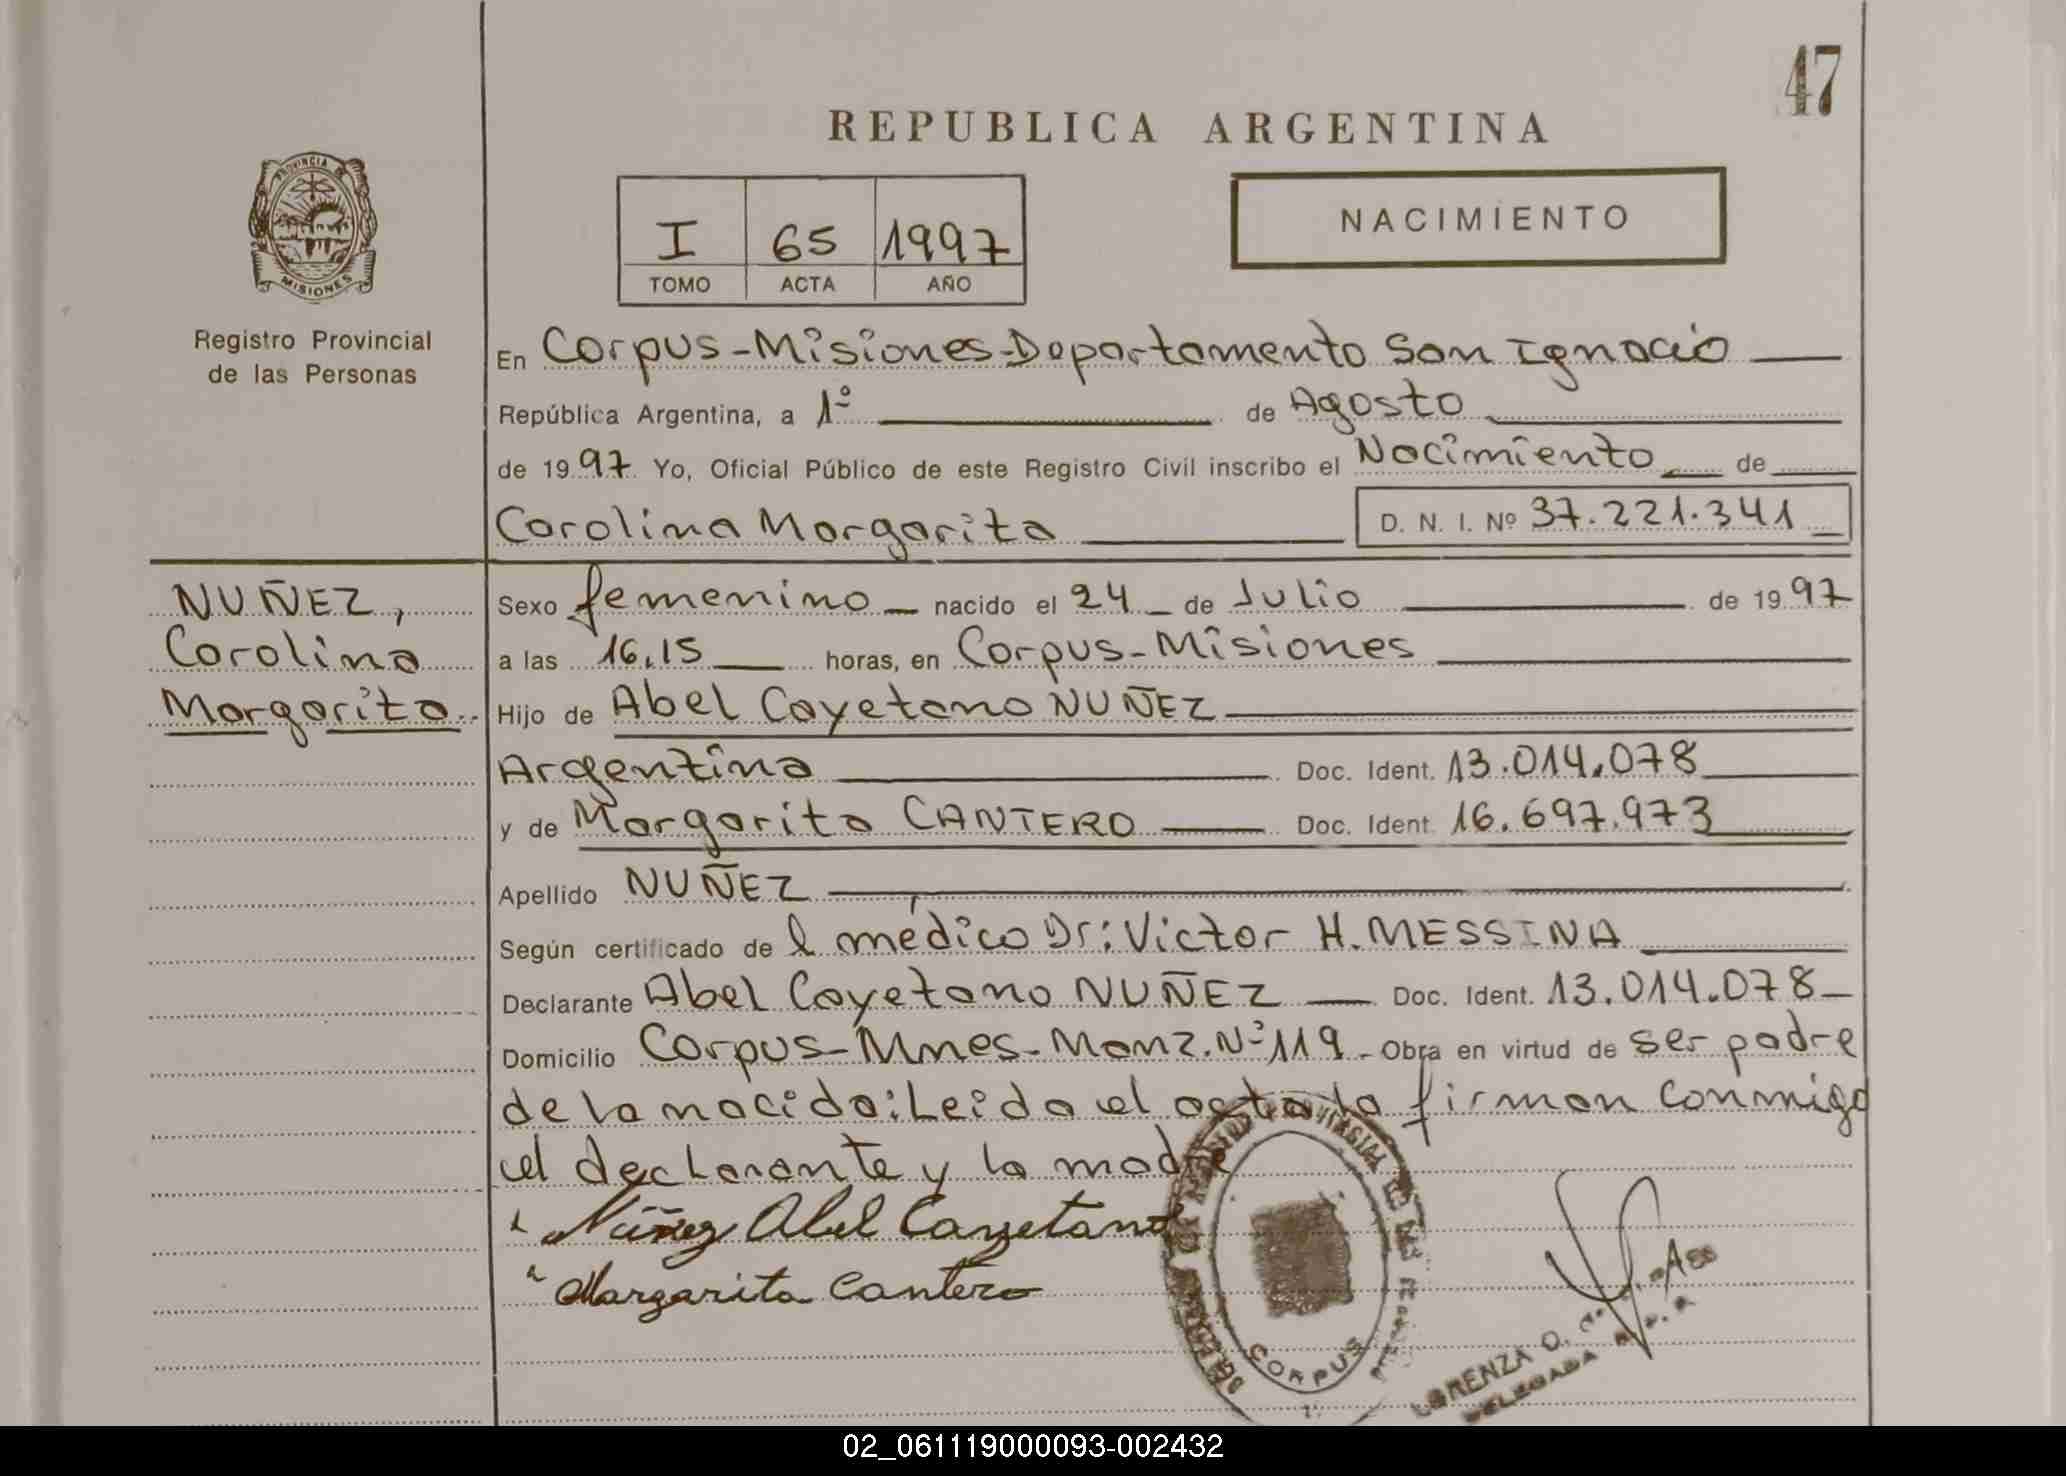 47
REPUBLICA ARGENTINA
PROVINCIA DE
MISIONES
I 65 1997
TOMO ACTA AÑO
NACIMIENTO
Registro Provincial
de las Personas
En Corpus-Misiones-Departamento San Ignacio
República Argentina, a 1º de Agosto
de 1997 Yo, Oficial Público de este Registro Civil inscribo el Nacimiento de
Carolina Margarita D. N. I. Nº 37.221.341
NUÑEZ,
Carolina
Margarita
Sexo femenino nacido el 24 de Julio de 1997
a las 16,15 horas, en Corpus-Misiones
Hijo de Abel Cayetano NUÑEZ
Argentina Doc. Ident. 13.014.078
y de Margarita CANTERO Doc. Ident. 16.697.973
Apellido NUÑEZ
Según certificado de l médico Dr: Victor H. MESSINA
Declarante Abel Cayetano NUÑEZ Doc. Ident. 13.014.078
Domicilio Corpus-Mnes-Manz. Nº 119- Obra en virtud de ser padre
de la nacida: Leida el acta la firman conmigo
el declarante y la madre
Núñez Abel Cayetano
Margarita Cantero
CORPUS
LORENZA O.
DELEGADA
02_061119000093-002432